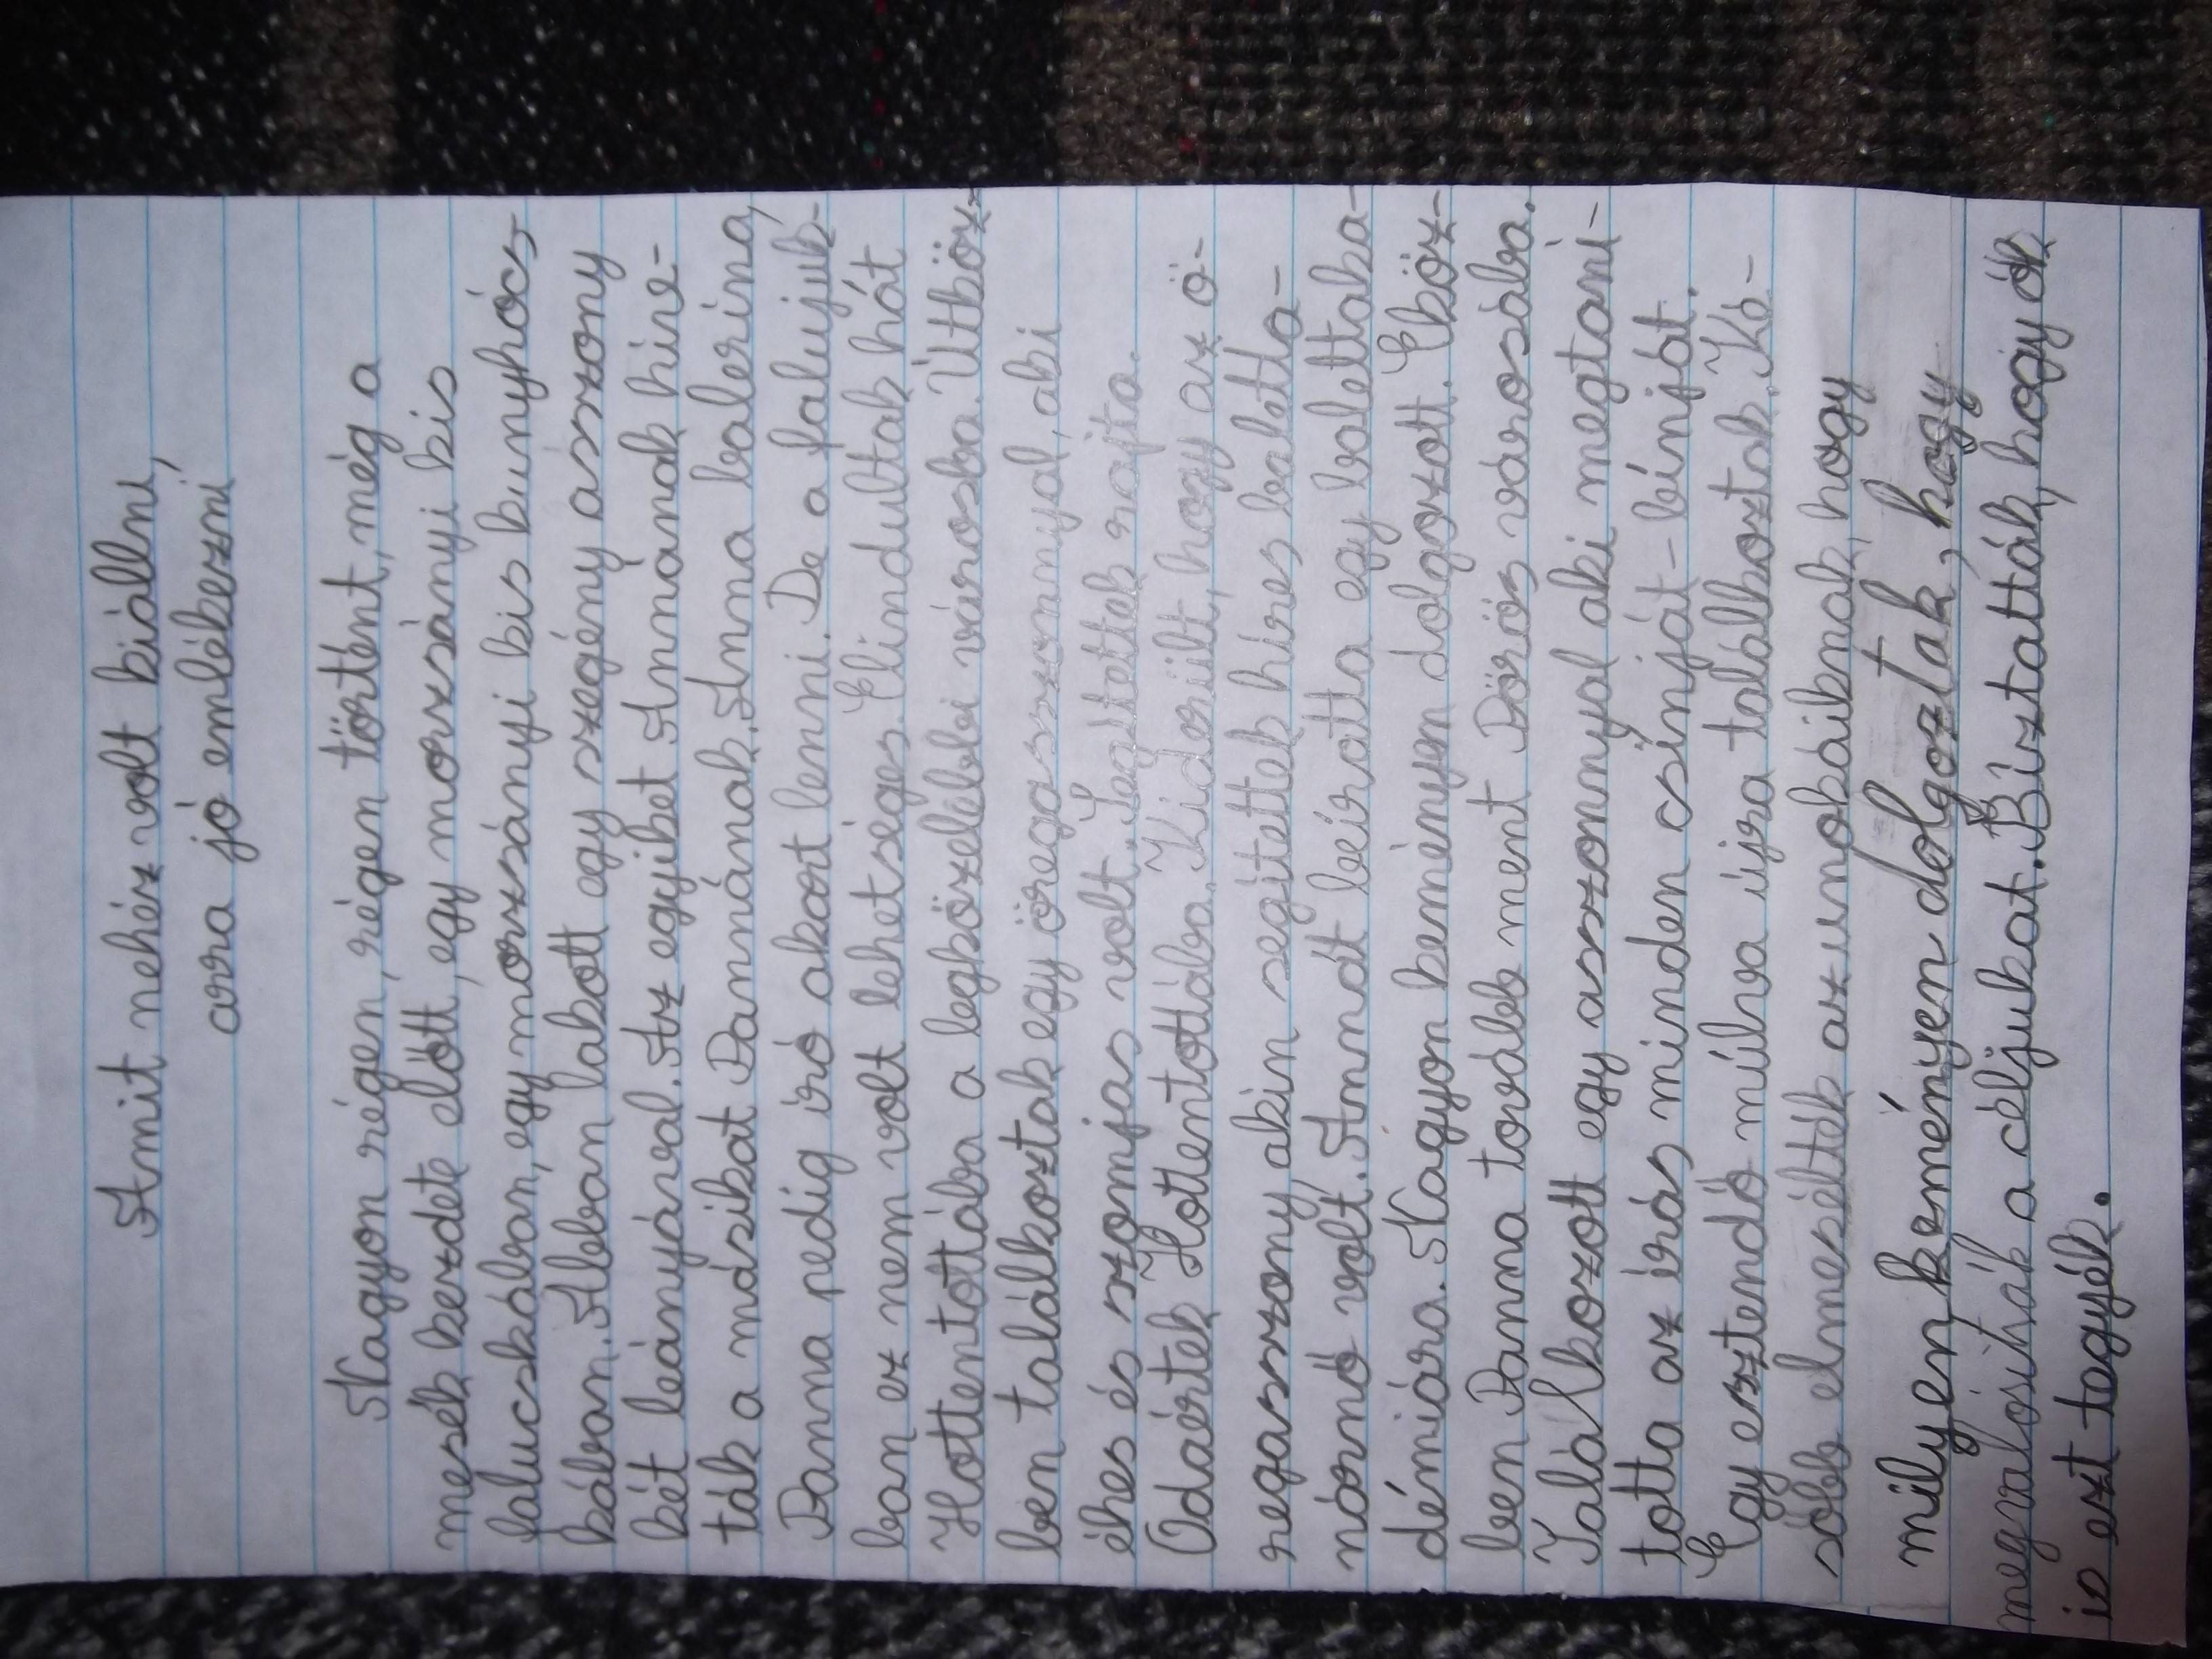 Amit nehéz volt kiállni,
arra jó emlékezni
Nagyon régen, régen történt, még a
mesék kezdete előtt, egy morzsányi kis
falucskában, egy morzsányi kis kunyhócs-
kában. Abban lakott egy szegény asszony
két leányával. Az egyiket Annának hív-
ták a másikat Pannának. Anna balerina,
Panna pedig író akart lenni. De a falujuk-
ban ez nem volt lehetséges. Elindultak hát
Hottentottába a legközelebbi városba. Útköz-
ben találkoztak egy öregasszonnyal, aki
éhes és szomjas volt. Segítettek rajta.
Odaértek Hottentottába. Kiderült, hogy az ö-
regasszony akin segítettek híres baletta-
nárnő volt. Annát beíratta egy balettaka-
démiára. Nagyon keményen dolgozott. Eköz-
ben Panna tovább ment Pörös városába.
Találkozott egy asszonnyal aki megtaní-
totta az írás minden csínját-bínját.
Egy esztendő múlva újra találkoztak. Ké-
sőbb elmesélték az unokáiknak, hogy
milyen keményen dolgoztak, hogy
megvalósítsák a céljukat. Bíztatták, hogy ők
is ezt tegyék.